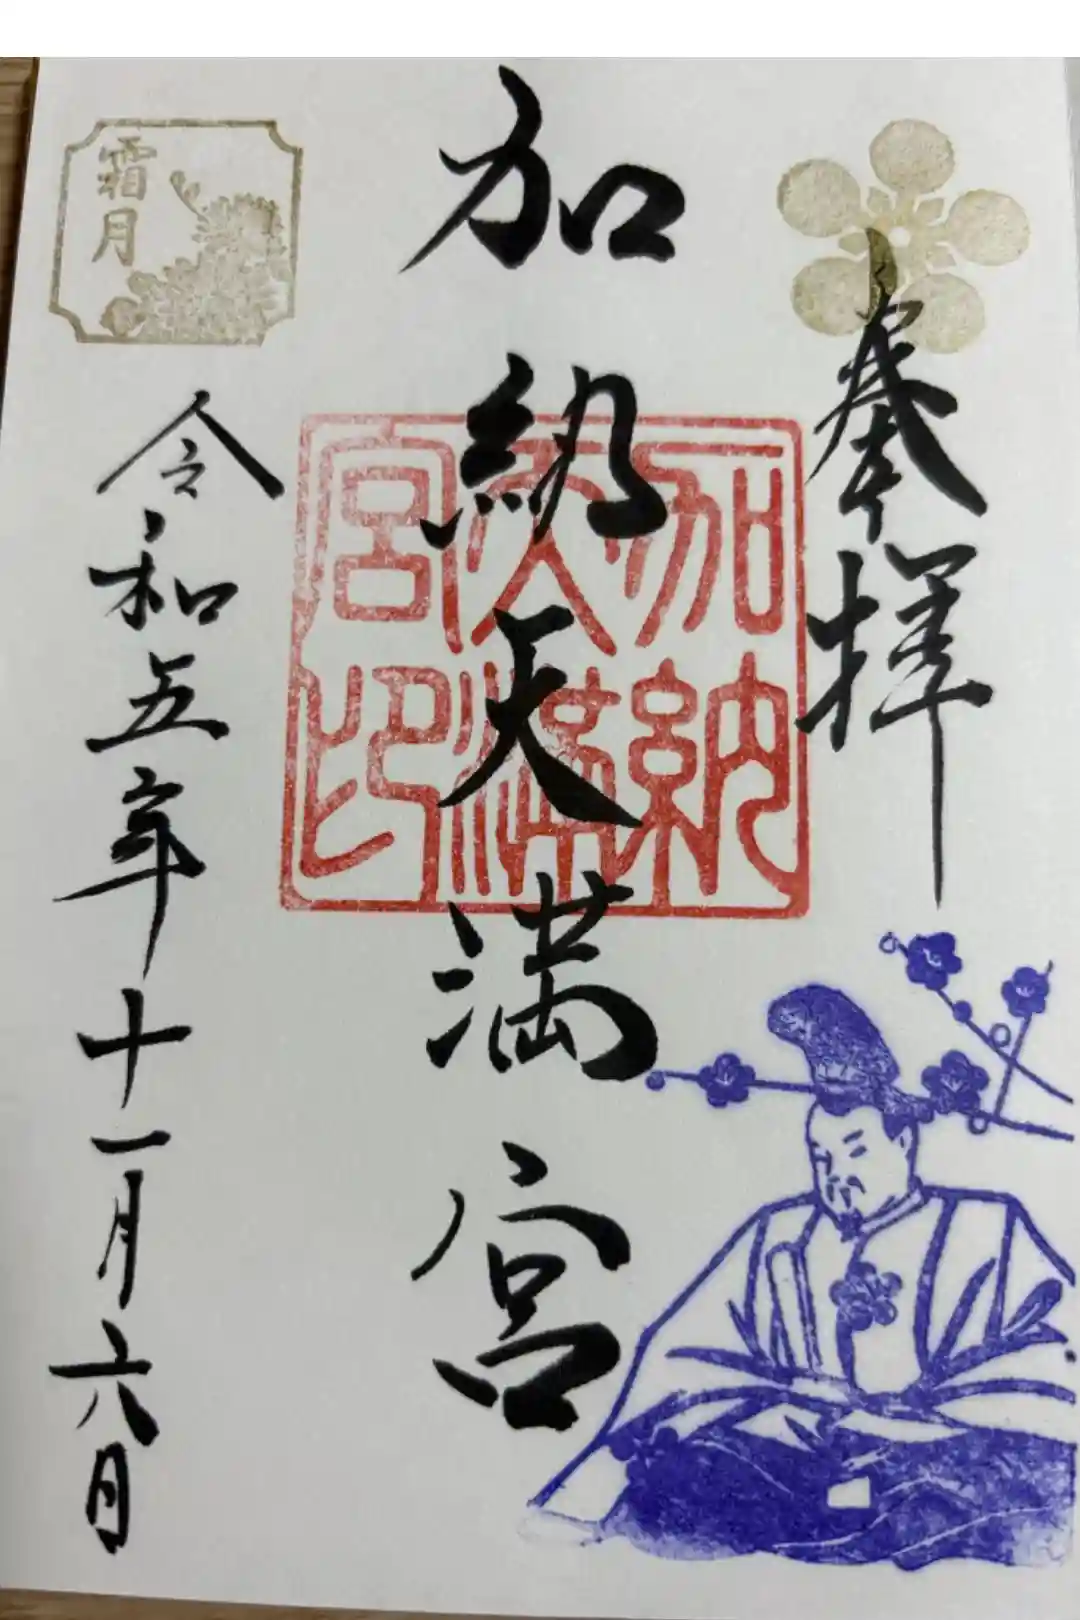 奉拝
加納天満宮
加納天満宮印
霜月
令和五年十一月六日